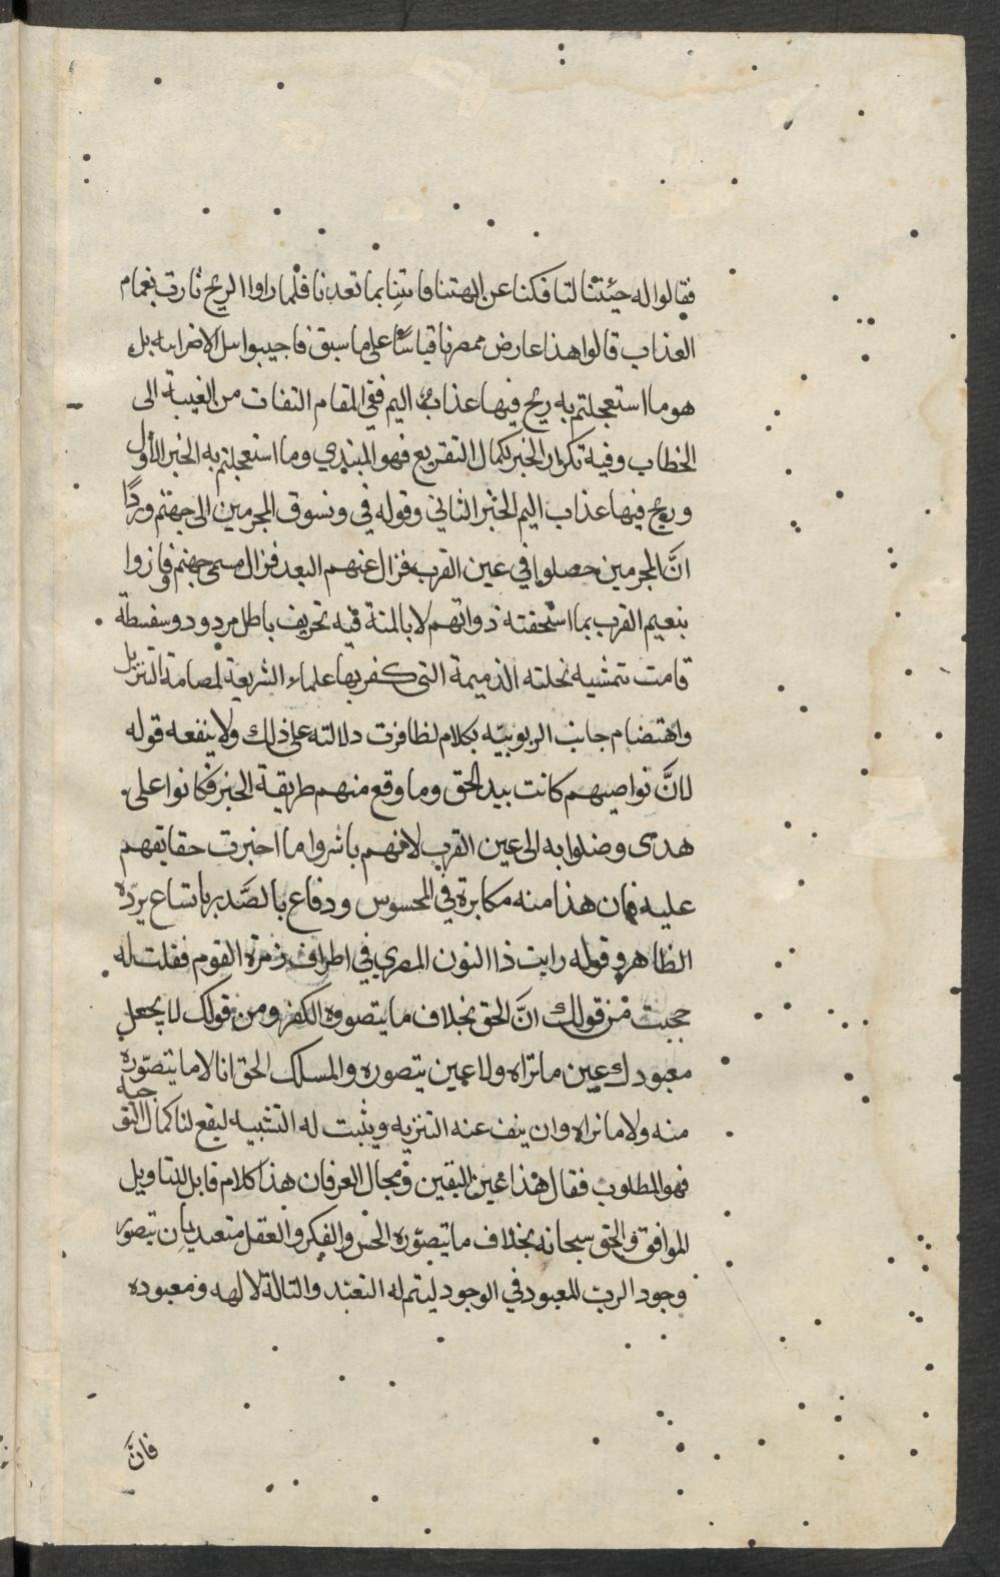 فقالوا له جئتنا لتافكنا عن الهتنا فاتنا بما تعدنا فلما راوا الريح ثارت بغمام
العذاب قالوا هذا عارض ممطرنا قياسا على ما سبق فاجيبوا بل
هو ما استعجلتم به ريح فيها عذاب اليم ففي المقام التفات من الغيبة الى
الخطاب وفيه تكرار الخبر لكمال التقريع فهو المبتدي وما استعجلتم به الخبر الأول
وريح فيها عذاب اليم الخبر الثاني وقوله في ونسوق المجرمين الى جهنم وردًا
انَّ المجرمين حصلوا في عين القرب فزال عنهم البعد فزال مسمى جهنم وفازوا
بنعيم القرب بما استحقته ذواتهم لا بالمنة فيه تحريف باطل مردود وسفسطة
قامت بتمشيه نحلته الذميمة التى كفر بها علماء الشريعة لمصامة التنزيل
واهتضام جانب الربوبيّه بكلام تظافرت دلالته على ذلك ولا ينفعه قوله
لانَّ نواصيهم كانت بيد الحق وما وقع منهم طريقة الجبر فكانوا على
هدى وضلوا به الى عين القرب لانهم باشروا ما اجبرت حقايقهم
عليه فان هذا منه مكابرة في المحسوس ودفاع بالصَّدر باتساع يردّه
الظاهر وقوله رايت ذا النون المصري في اطراف زمرة القوم فقلت له
عجبت من قولك انَّ الحق بخلاف ما يتصوره الكفر ومن قولك لا يجعل
معبودك عين ما تراه ولا عين يتصوره والمسلك الحق انا لا ما يتصوّره
منه ولا ما نراه وان ينف عنه التنزيه ويثبت له التشبيه ليقع لنا كمال التوجه
فهو المطلوب فقال هذا عين اليقين ومجال العرفان هذا كلام قابل للتاويل
الموافق والحق سبحانه بخلاف ما يتصوّره الحس والفكر والعقل متعبد بان تبصور
وجود الرب المعبود في الوجود ليتم له التعبّد والتالة لالهه ومعبوده
فانَّ